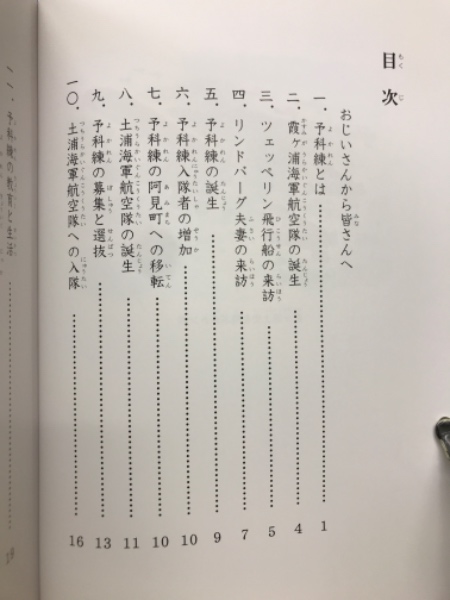 目次
おじいさんから皆さんへ
一．予科練とは……1
二．霞ヶ浦海軍航空隊の誕生……4
三．ツェッペリン飛行船の来訪……5
四．リンドバーグ夫妻の来訪……7
五．予科練の誕生……9
六．予科練入隊者の増加……10
七．予科練の阿見町への移転……10
八．土浦海軍航空隊の誕生……11
九．予科練の募集と選抜……13
一〇．土浦海軍航空隊への入隊……16
一一．予科練の教育と生活